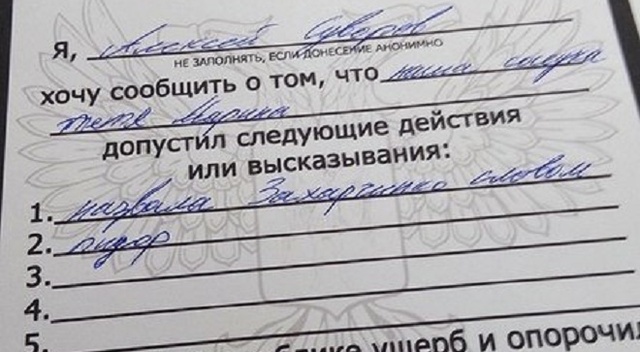 Я, Алексей Суворов
НЕ ЗАПОЛНЯТЬ, ЕСЛИ ДОНЕСЕНИЕ АНОНИМНО
хочу сообщить о том, что наша соседка
тетя Марина
допустил следующие действия
или высказывания:
1. назвала Захарченко словом
2. пидор
3.
4.
5.
ущерб и опорочил